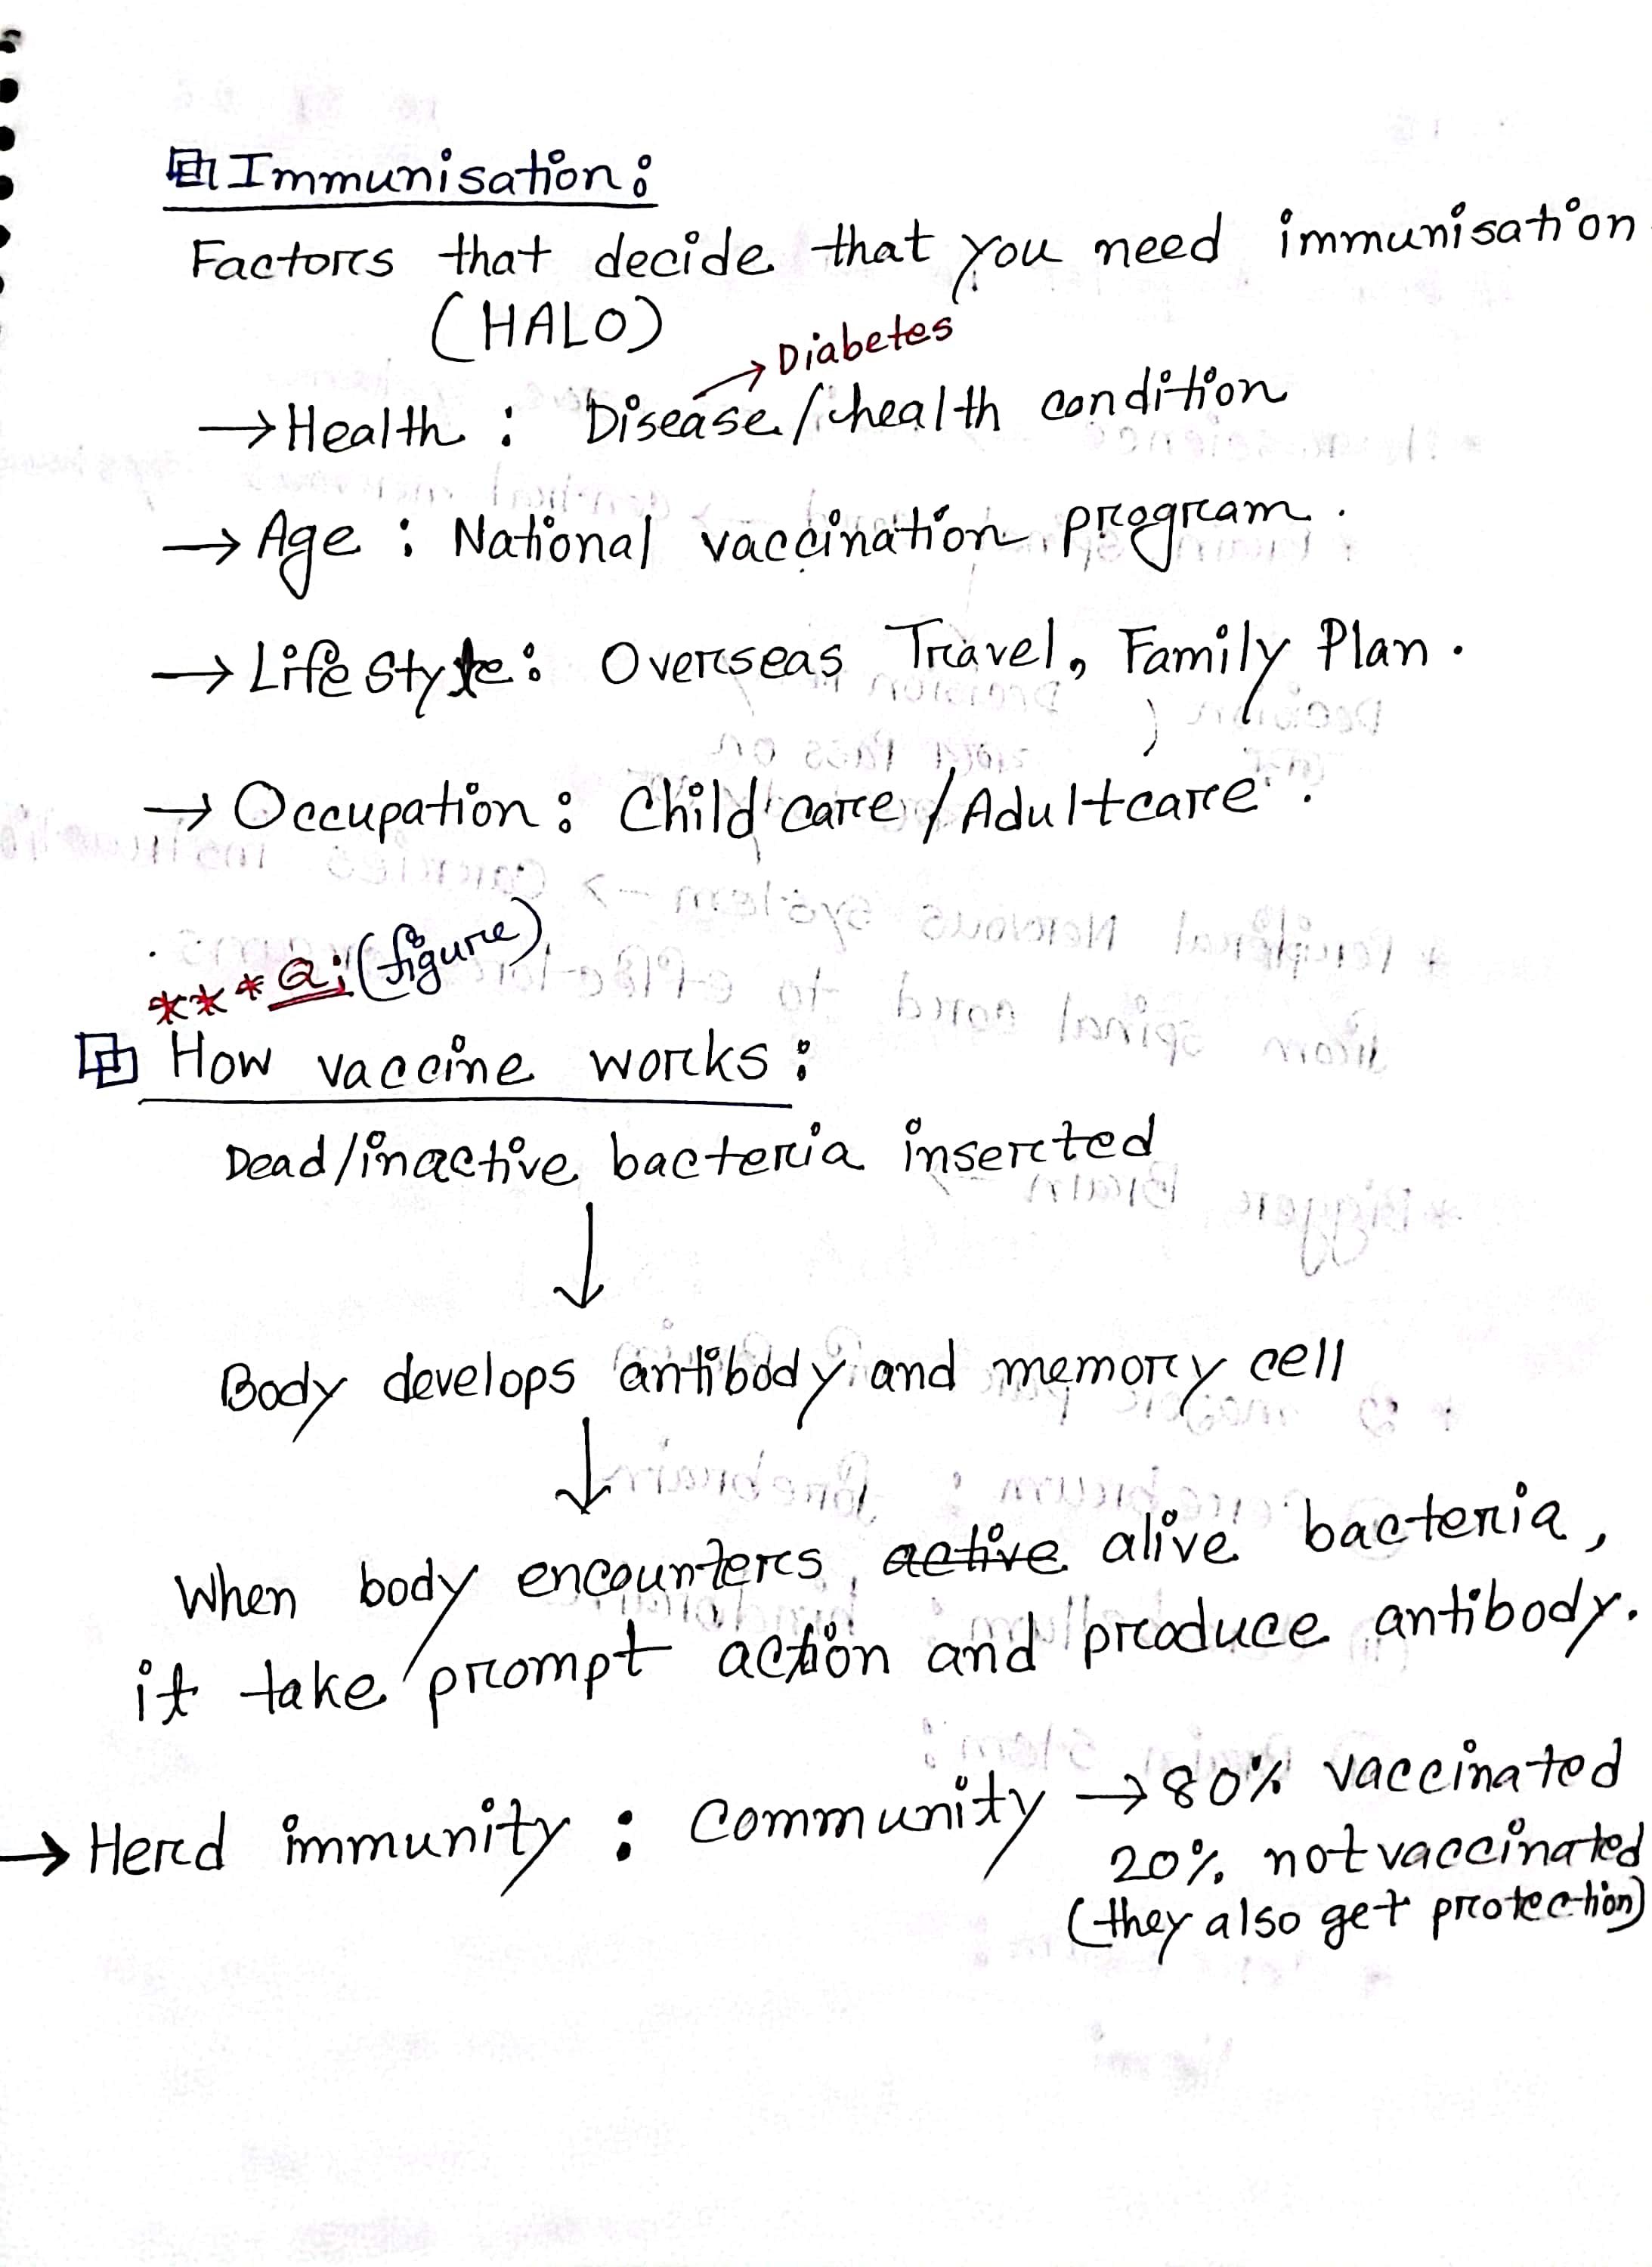 Immunisation:
Factors that decide that you need immunisation
(HALO)
→ Diabetes
→ Health : Disease/health condition
→ Age : National vaccination program.
→ Life Style: Overseas Travel, Family Plan.
→ Occupation: Child care / Adultcare.
***Q: (figure)
How vaccine works:
Dead/inactive bacteria inserted
↓
Body develops antibody and memory cell
↓
When body encounters active alive bacteria,
it take prompt action and produce antibody.
→ Herd immunity : Community → 80% vaccinated
20% not vaccinated
(they also get protection)